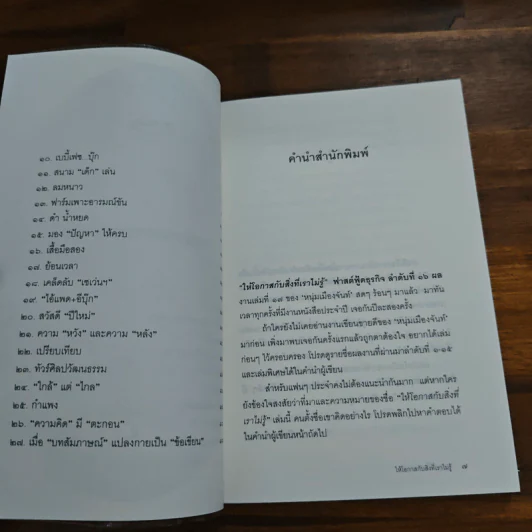 ๑๐. เบบี้เฟซ..บุ๊ก
๑๑. สนาม “เด็ก” เล่น
๑๒. ลมหนาว
๑๓. ฟาร์มเพาะอารมณ์ขัน
๑๔. ดำ น้ำหยด
๑๕. มอง “ปัญหา” ให้ครบ
๑๖. เสื้อมือสอง
๑๗. ย้อนเวลา
๑๘. เคล็ดลับ “เซเว่นฯ”
๑๙. “ไอ้แพด+อีบุ๊ก”
๒๐. สวัสดี “ปีใหม่”
๒๑. ความ “หวัง” และความ “หลัง”
๒๒. เปรียบเทียบ
๒๓. ทัวร์ศิลปวัฒนธรรม
๒๔. “ใกล้” แต่ “ไกล”
๒๕. กำแพง
๒๖. “ความคิด” มี “ตะกอน”
๒๗. เมื่อ “บทสัมภาษณ์” แปลงกายเป็น “ข้อเขียน”
คำนำสำนักพิมพ์
“ให้โอกาสกับสิ่งที่เราไม่รู้” ฟาสต์ฟู้ดธุรกิจ ลำดับที่ ๑๖ ผล
งานเล่มที่ ๑๙ ของ ‘หนุ่มเมืองจันท์’ สดๆ ร้อนๆ มาแล้ว มาทัน
เวลาทุกครั้งที่มีงานหนังสือประจำปี เจอกันปีละสองครั้ง
ถ้าใครยังไม่เคยอ่านงานเขียนขายดีของ ‘หนุ่มเมืองจันท์’
มาก่อน เพิ่งมาพบเจอกันครั้งแรกแล้วถูกตาต้องใจ อยากได้เล่ม
ก่อนๆ ไว้ครอบครอง โปรดดูรายชื่อผลงานที่ผ่านมาลำดับที่ ๑-๑๕
และเล่มพิเศษได้ในคำนำผู้เขียน
สำหรับแฟนๆ ประจำคงไม่ต้องแนะนำกันมาก แต่หากใคร
ยังข้องใจสงสัยว่าที่มาและความหมายของชื่อ “ให้โอกาสกับสิ่งที่
เราไม่รู้” เล่มนี้ คนตั้งชื่อเขาคิดอย่างไร โปรดพลิกไปหาคำตอบได้
ในคำนำผู้เขียนหน้าถัดไป
ให้โอกาสกับสิ่งที่เราไม่รู้ ๗